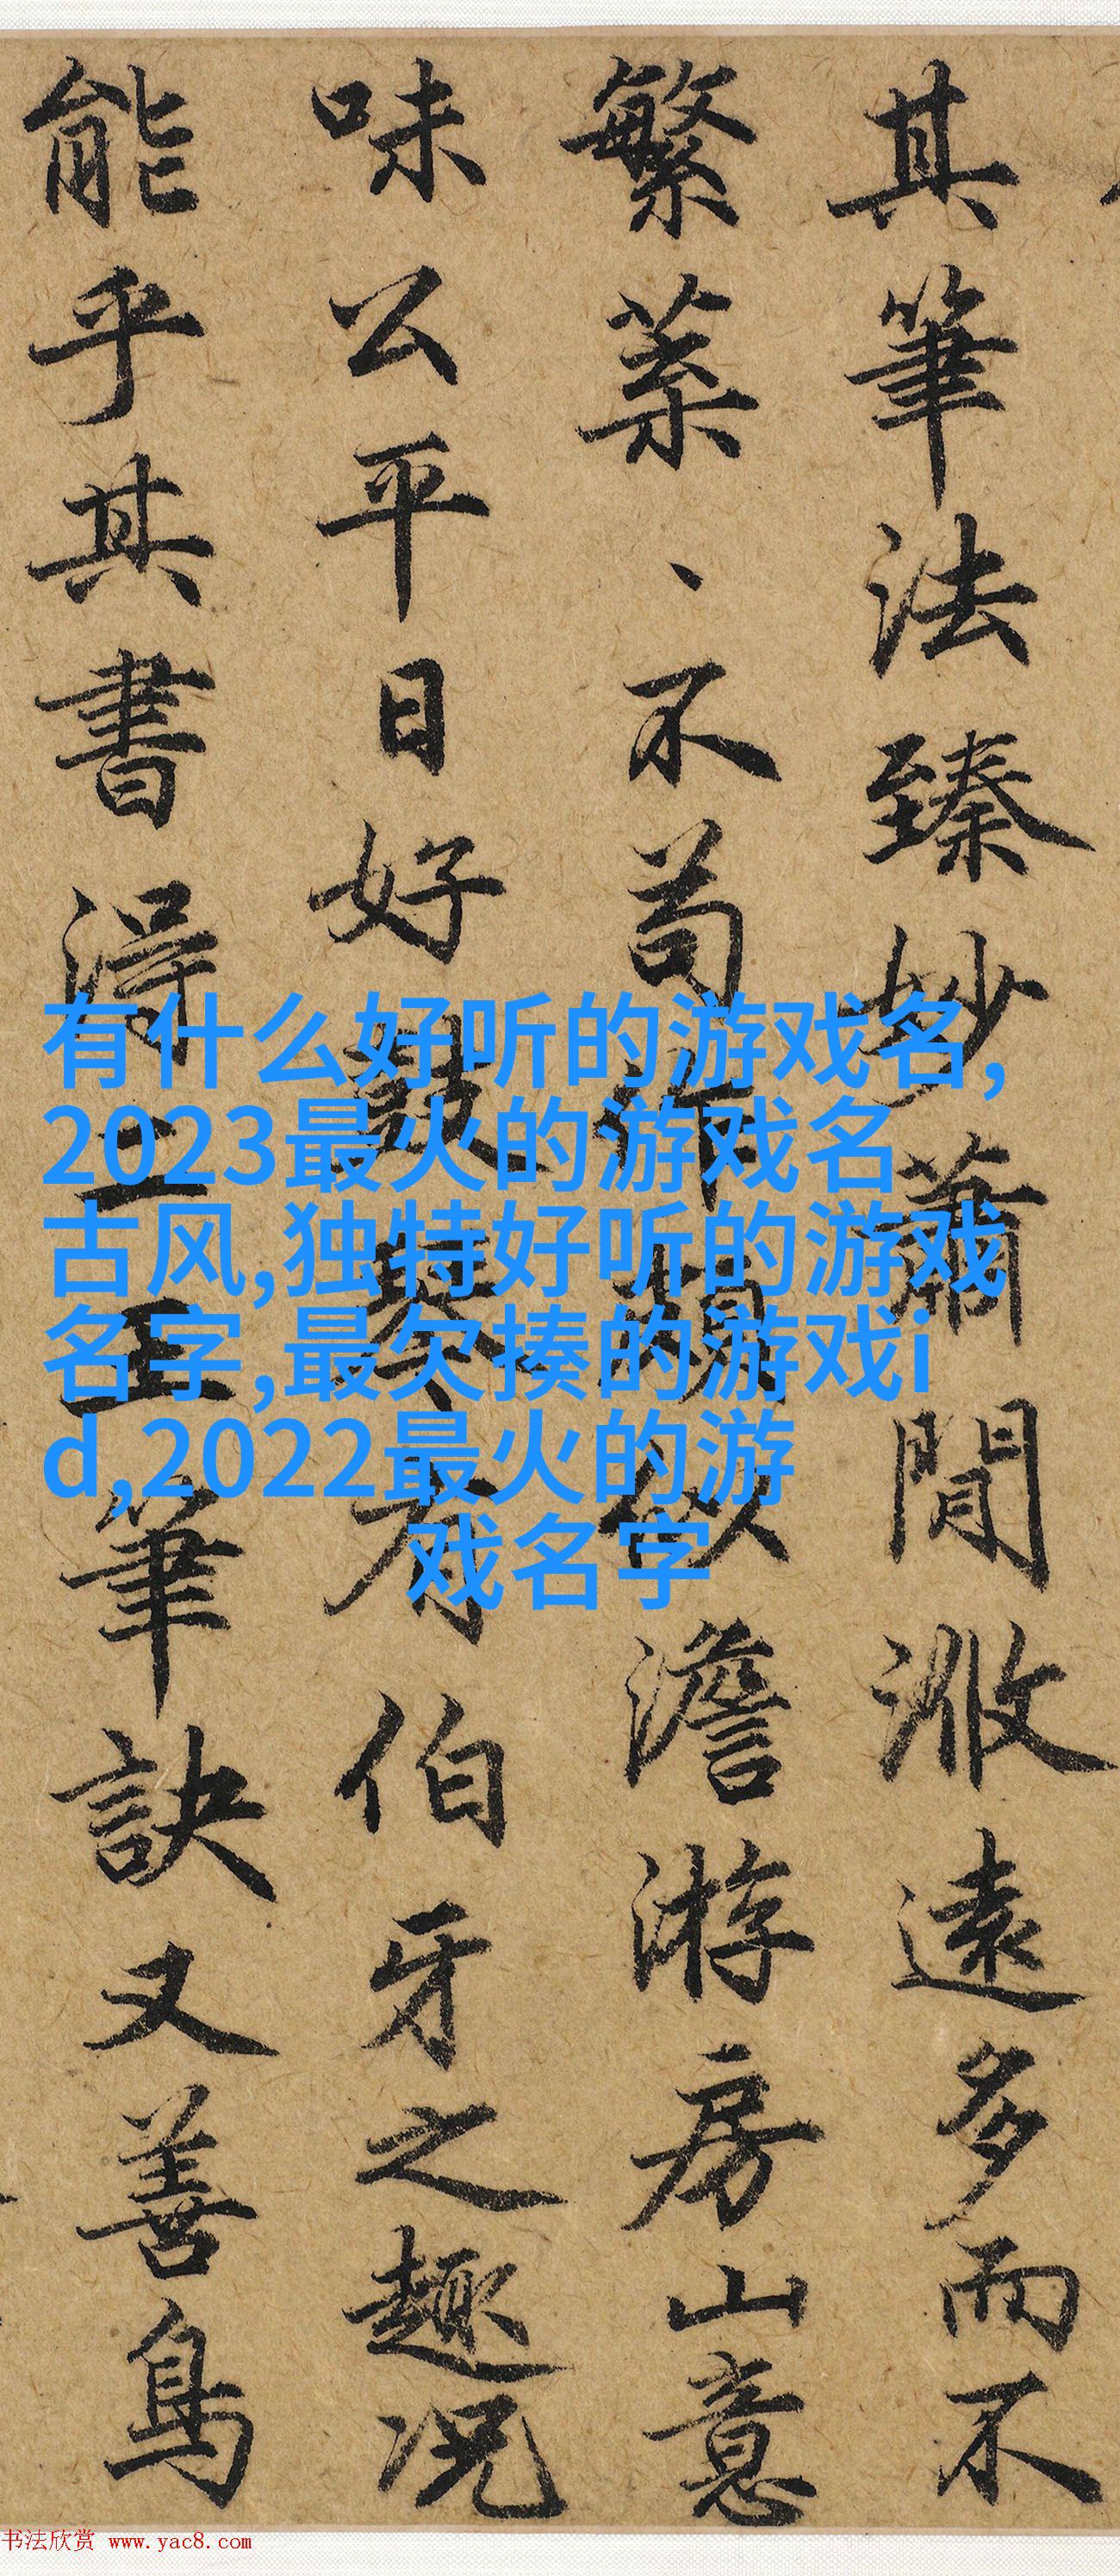 其筆法臻妙蕭閒遠多而不
繁葉、不苟作頗似澹游房山意
味公平日好鼓琴有伯牙之趣况
能乎其書得二王筆訣又善鳥
有什么好听的游戏名,
2023最火的游戏名
古风,独特好听的游戏
名字,最欠揍的游戏i
d,2022最火的游
戏名字
书法欣赏 www.yac8.com